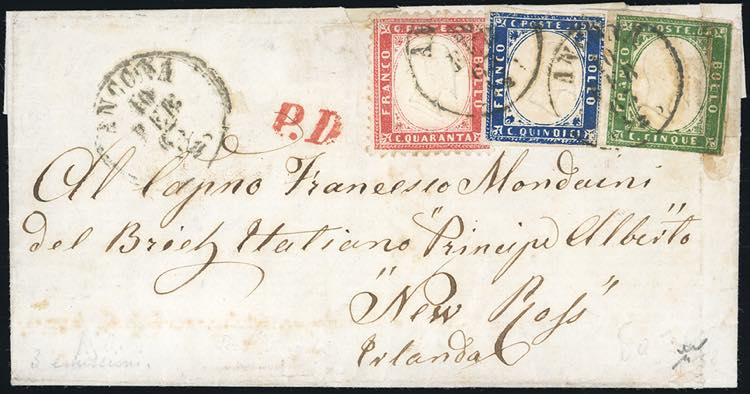 C. POSTE 40
FRANCO
BOLLO
C. QUARANTA
C. POSTE 15
FRANCO
BOLLO
C. QUINDICI
C. POSTE
BOLLO
C. CINQUE
ANCONA
10
FEB
63
P.D.
Al Capno Francesco Mondaini
del Brich Italiano "Principe Alberto"
"New Ross"
Irlanda
3 emissioni.